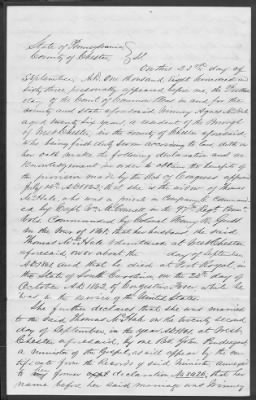 State of Pennsylvania
County of Chester SS
On this 23rd day of
September A.D. one thousand eight hundred and
sixty three personally appeared before me, the Prothono-
tary of the Court of Common Pleas in and for the
county and state aforesaid Winney Agnes McHale
aged twenty six years, a resident of the Borough
of West Chester, in the county of Chester aforesaid
who being first duly sworn according to law, doth on
her oath make the following declaration and
in order to obtain the benefit of
the provision made by the Act of Congress approved
July 14th A.D. 1862; that she is the widow of Thomas
McHale, who was a in Company E. comman-
ded by Capt. Wm. McConnell in the 97th Regt. Penn.
Vols. Commanded by Colonel Henry R. Guss
in the war of 1861; that her husband, the said
Thomas McHale volunteered at West Chester
aforesaid over about the day of September
A.D. 1861 and that he died at Port Royal, in
the State of South Carolina on the 28th day of
October A.D. 1862, of Congestive Fever while he
was in the service of the United States.
She further declares that she was married
to the said Thomas McHale on the twenty second
day of September, in the year A.D. 1861 at West
Chester aforesaid, by one Rev. John
a minister of the Gospel, as will appear by the cer-
tificate from the Records of said minister annexed
to my former declaration No 2926, that her
name before her said marriage was Winney